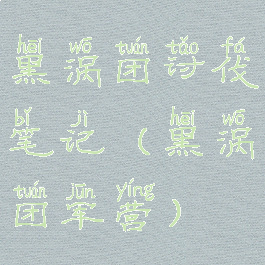 hēi wō tuán tǎo fá
黑涡团讨伐
bǐ jì hēi wō
笔记（黑涡
tuán jūn yíng
团军营）